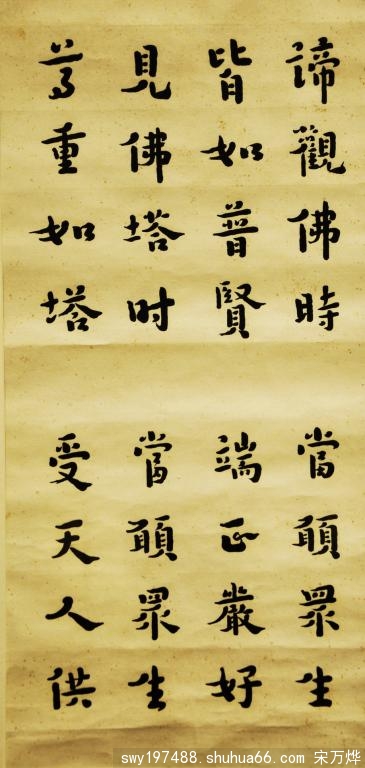 諦觀佛時 當願眾生
皆如普賢 端正嚴好
見佛塔时 當願眾生
尊重如塔 受天人供
swy197488.shuhua66.com 宋万烨